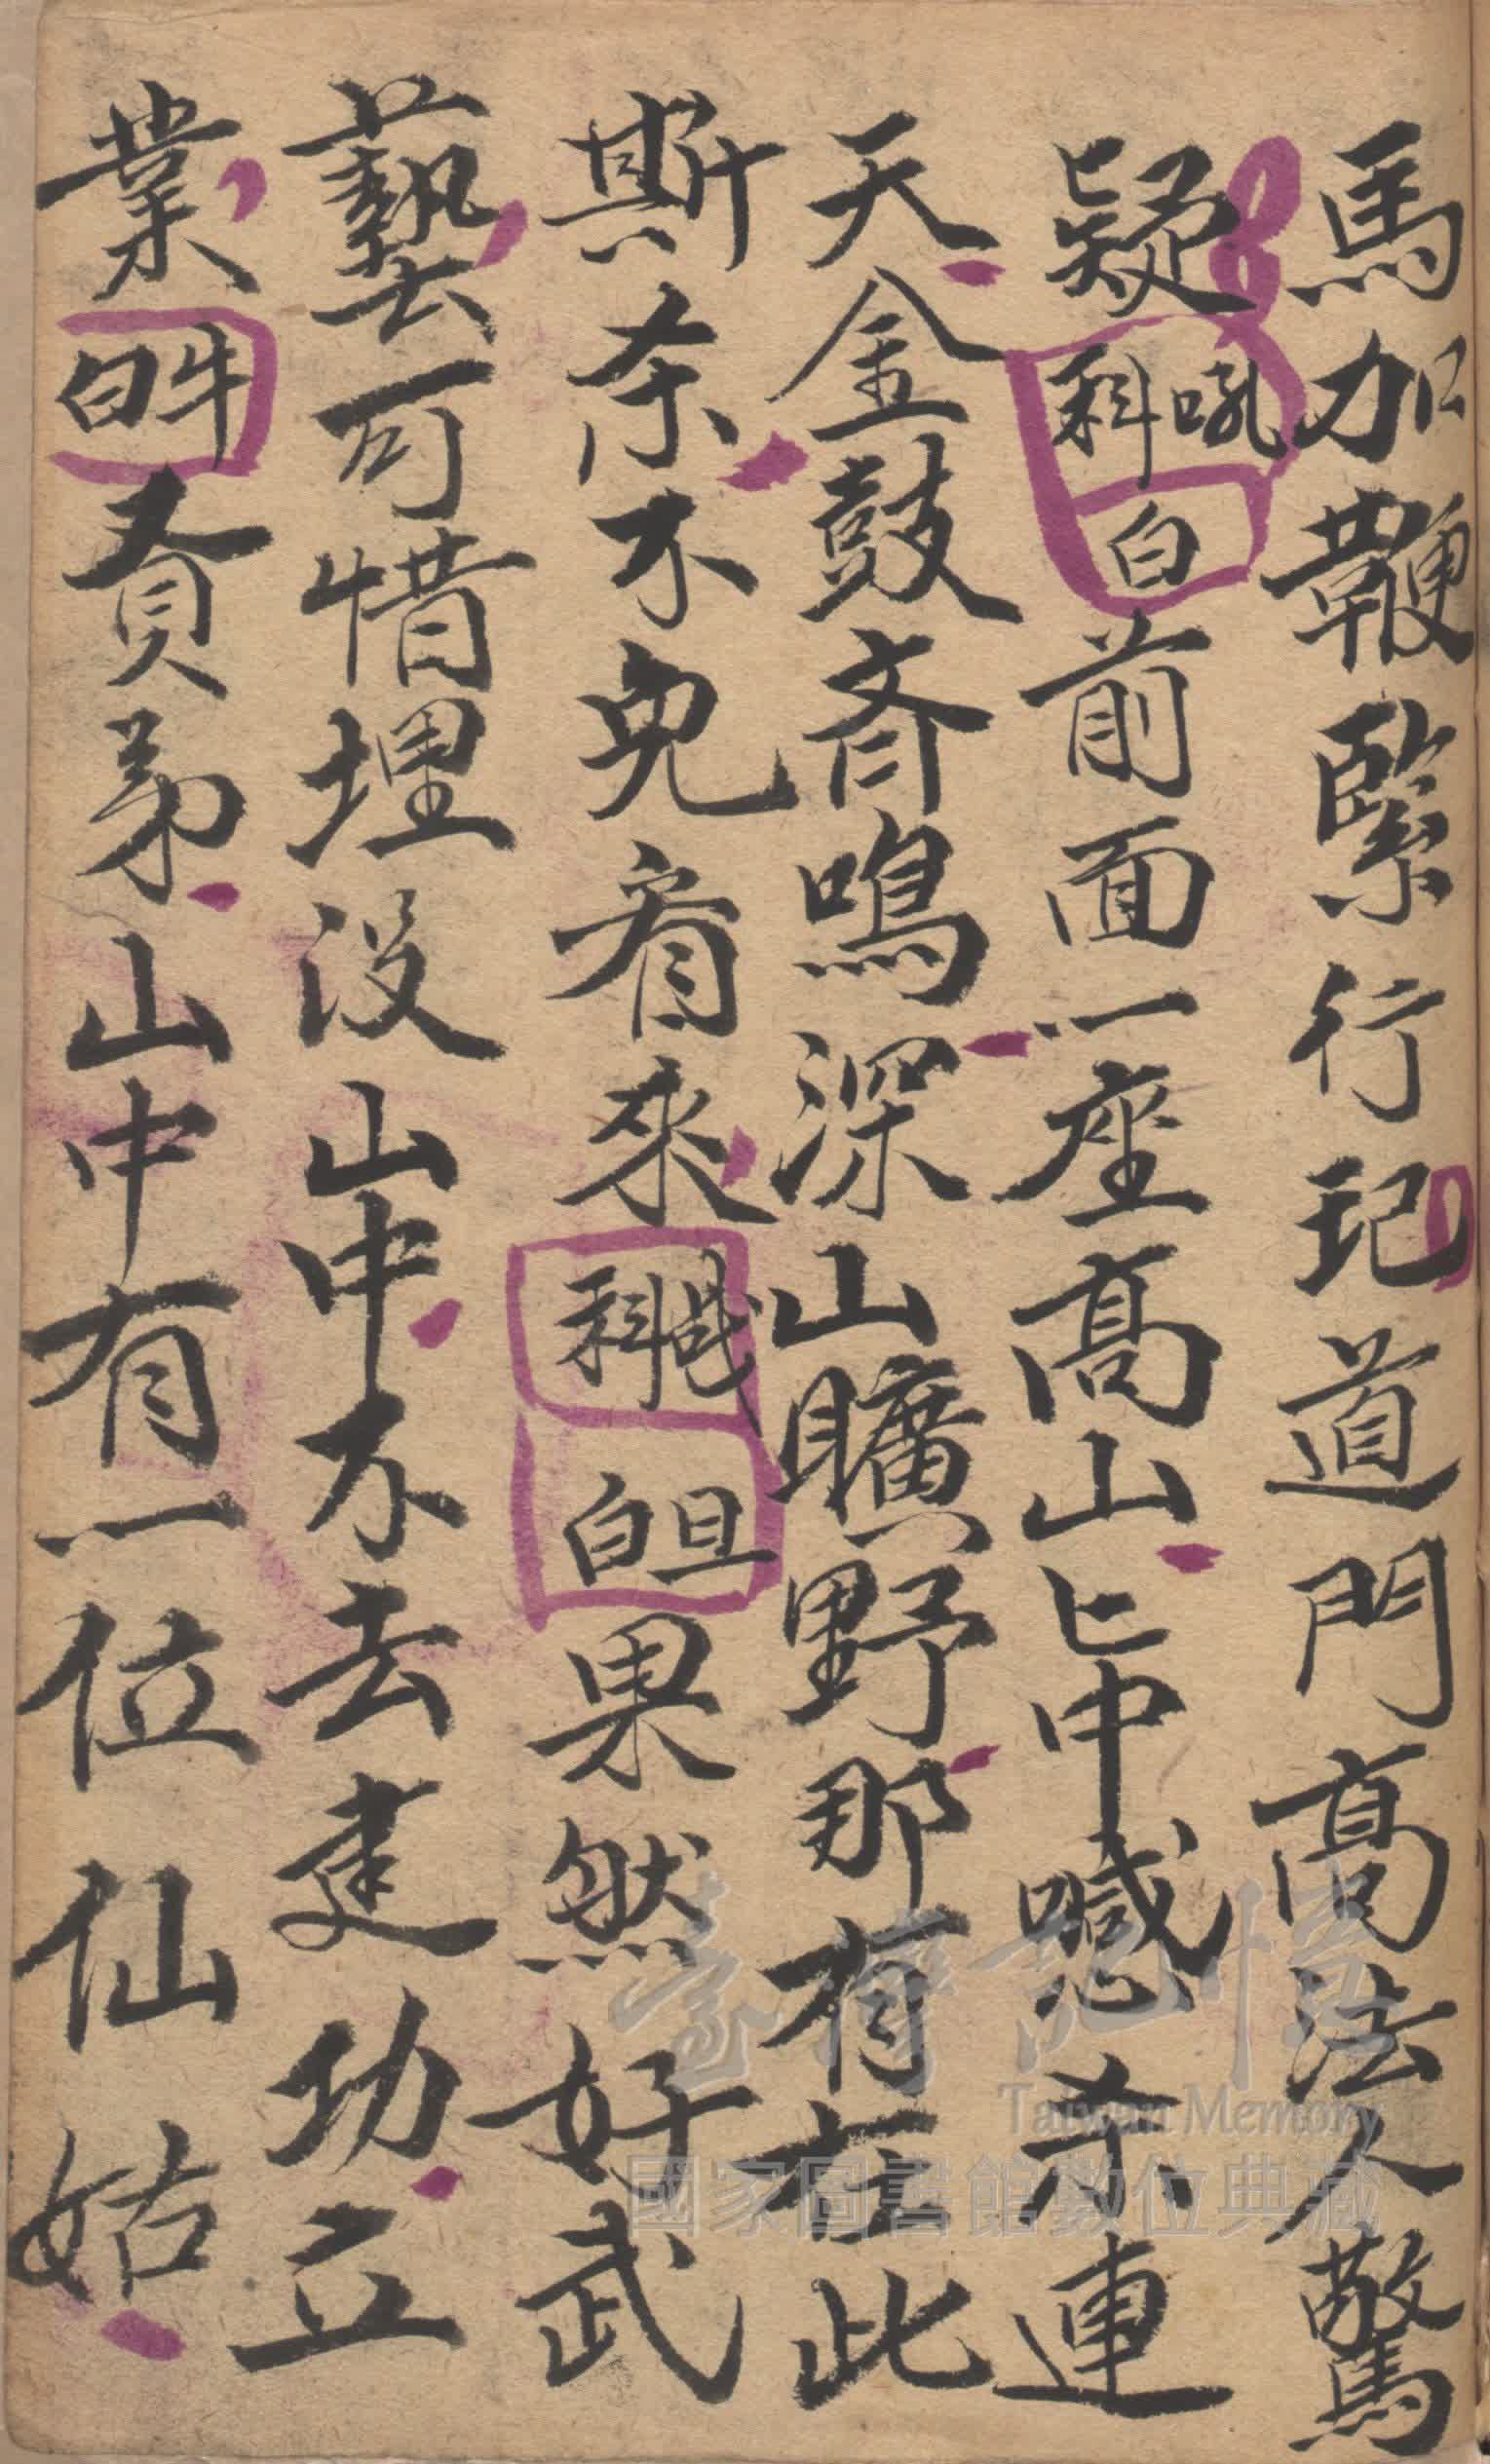 馬加鞭緊行 道門高法人驚
疑 吼科 白 前面一座高山匕中喊杀連
天金鼓齊鳴深山曠野那有在此
斯杀不免看來 科 旦白 果然好武
藝可惜埋没山中不去建功立
業 牛白 賢弟山中有一位仙姑
臺灣記憶
Taiwan Memory
國家圖書館數位典藏